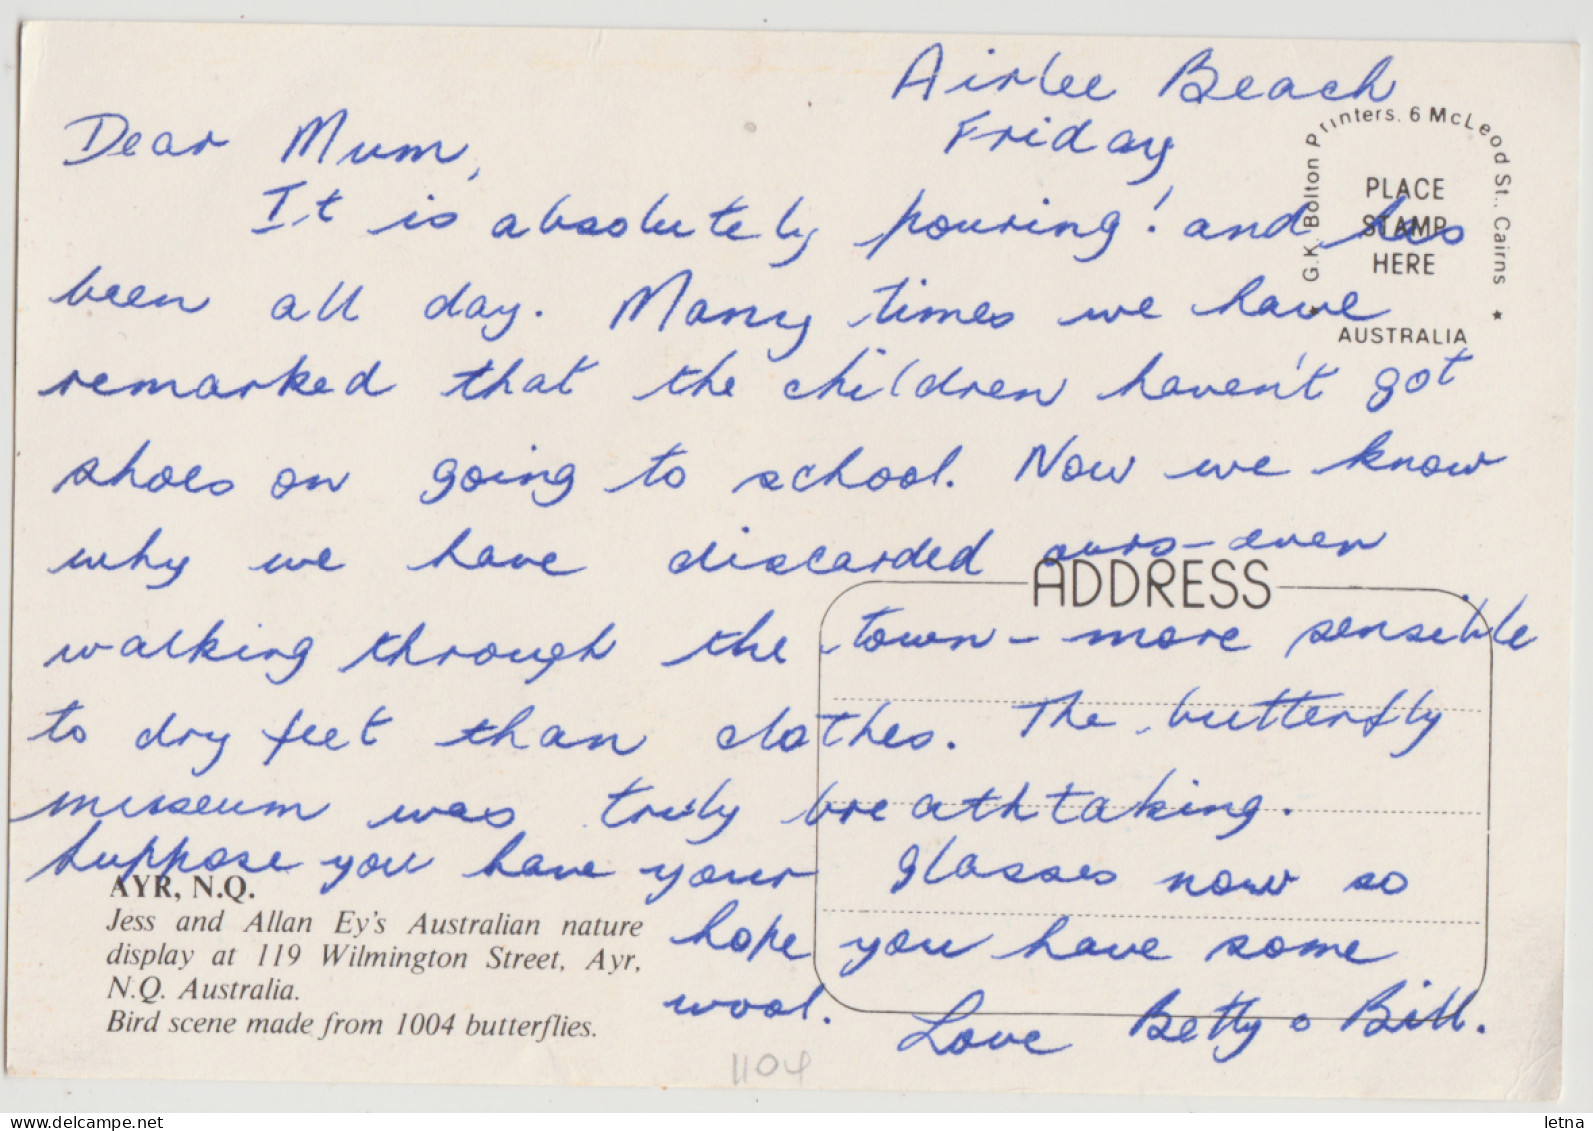 Airlee Beach
Friday
Dear Mum,
It is absolutely pouring! and has
been all day. Many times we have
remarked that the children haven't got
shoes on going to school. Now we know
why we have discarded ours - even
walking through the town - more sensible
to dry feet than clothes. The butterfly
museum was truly breathtaking.
Suppose you have your glasses now so
hope you have some
wool.
Love Betty & Bill.
G.K. Bolton Printers. 6 McLeod St., Cairns
PLACE
STAMP
HERE
★ ★
AUSTRALIA
ADDRESS
AYR, N.Q.
Jess and Allan Ey's Australian nature
display at 119 Wilmington Street, Ayr,
N.Q. Australia.
Bird scene made from 1004 butterflies.
1104
www.delcampe.net
letna